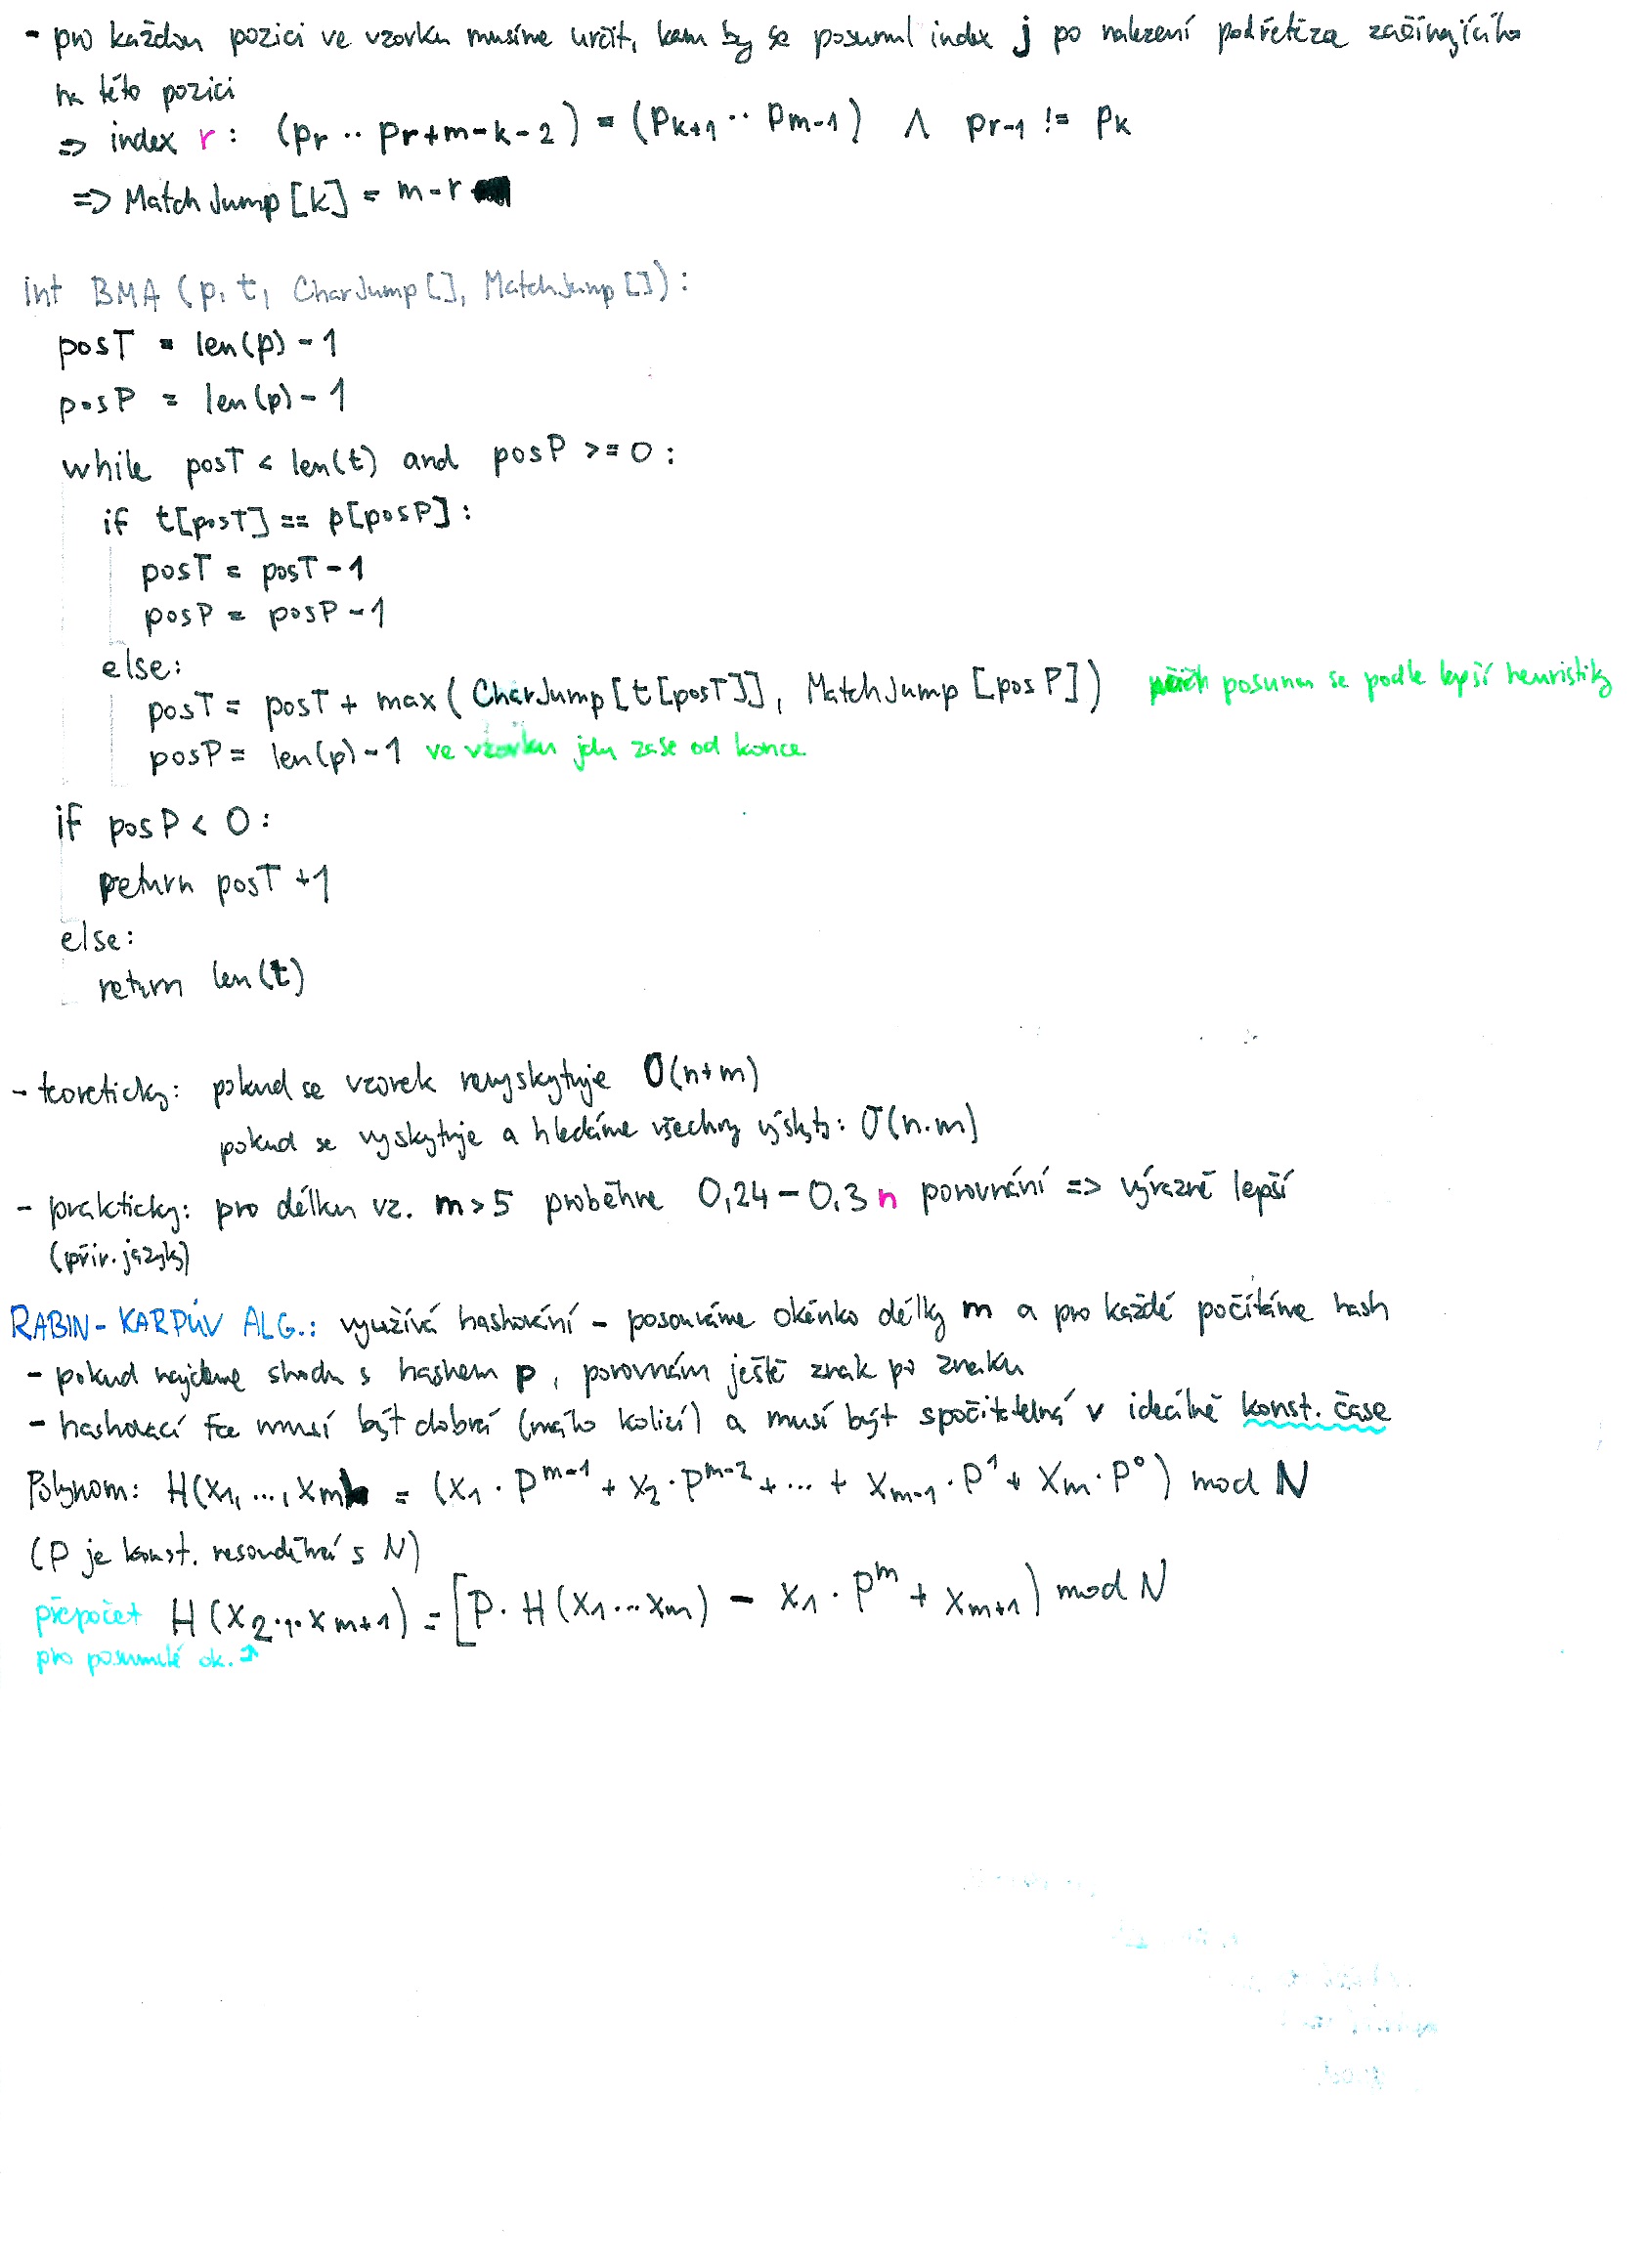 - pro každou pozici ve vzorku musíme určit, kam by se posunul index j po nalezení podřetězce začínajícího
na této pozici
=> index r: (pr .. pr+m-k-2) = (pk+1 .. pm-1) ∧ pr-1 != pk
=> MatchJump[k] = m-r
int BMA (p, t, CharJump[], MatchJump[]):
posT = len(p) - 1
posP = len(p) - 1
while posT < len(t) and posP >= 0:
if t[posT] == p[posP]:
posT = posT - 1
posP = posP - 1
else:
posT = posT + max (CharJump[t[posT]], MatchJump[posP]) posunu se podle lepší heuristiky
posP = len(p) - 1 ve vzorku jdu zase od konce
if posP < 0:
return posT + 1
else:
return len(t)
- teoreticky: pokud se vzorek nevyskytuje O(n+m)
pokud se vyskytuje a hledáme všechny výskyty: O(n.m)
- prakticky: pro délku vz. m > 5 proběhne 0,24 - 0,3 n porovnání => výrazně lepší
(přir. jazyky)
RABIN-KARPŮV ALG.: využívá hashování - posouváme okénko délky m a pro každé počítáme hash
- pokud najdeme shodu s hashem p, porovnám ještě znak po znaku
- hashovací fce musí být dobrá (málo kolizí) a musí být spočitatelná v ideálně konst. čase
Polynom: H(x1, ..., xm) = (x1 · P^m-1 + x2 · P^m-2 + ... + xm-1 · P^1 + xm · P^0) mod N
(P je konst. nesoudělná s N)
přepočet H(x2...xm+1) = [P · H(x1...xm) - x1 · P^m + xm+1) mod N
pro posunuté ok.